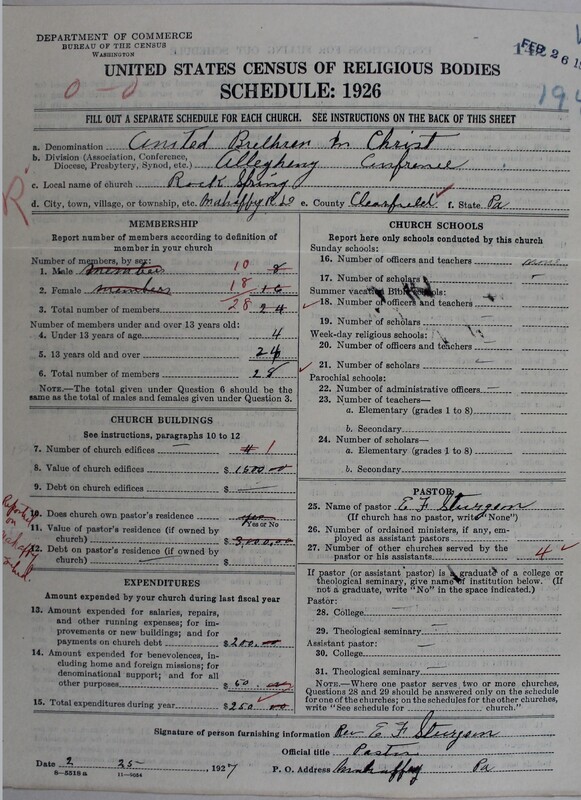 DEPARTMENT OF COMMERCE
BUREAU OF THE CENSUS
WASHINGTON
FEB 26 19
UNITED STATES CENSUS OF RELIGIOUS BODIES
SCHEDULE: 1926
0-0
194
FILL OUT A SEPARATE SCHEDULE FOR EACH CHURCH. SEE INSTRUCTIONS ON THE BACK OF THIS SHEET
a. Denomination United Brethren In Christ
b. Division (Association, Conference, Diocese, Presbytery, Synod, etc.) Allegheny Conference
c. Local name of church Rock Spring
R
d. City, town, village, or township, etc. Mahaffey e. County Clearfield f. State Pa
MEMBERSHIP
Report number of members according to definition of
member in your church
Number of members, by sex:
1. Male member 10 8
2. Female members 18 16
3. Total number of members 28 24
Number of members under and over 13 years old:
4. Under 13 years of age 4
5. 13 years old and over 24
6. Total number of members 28
NOTE.—The total given under Question 6 should be the
same as the total of males and females given under Question 3.
CHURCH BUILDINGS
See instructions, paragraphs 10 to 12
7. Number of church edifices 1
8. Value of church edifices $ 1500.00
9. Debt on church edifices $
Reported on
10. Does church own pastor's residence yes
Yes or No
11. Value of pastor's residence (if owned by
church) $ 3,000.00
12. Debt on pastor's residence (if owned by
church) $
EXPENDITURES
Amount expended by your church during last fiscal year
13. Amount expended for salaries, repairs,
and other running expenses; for im-
provements or new buildings; and for
payments on church debt $ 200.00
14. Amount expended for benevolences, in-
cluding home and foreign missions; for
denominational support; and for all
other purposes $ 50.00
15. Total expenditures during year $ 250.00
CHURCH SCHOOLS
Report here only schools conducted by this church
Sunday schools:
16. Number of officers and teachers none
17. Number of scholars
Summer vacation Bible schools:
18. Number of officers and teachers
19. Number of scholars
Week-day religious schools:
20. Number of officers and teachers
21. Number of scholars
Parochial schools:
22. Number of administrative officers
23. Number of teachers—
a. Elementary (grades 1 to 8)
b. Secondary
24. Number of scholars—
a. Elementary (grades 1 to 8)
b. Secondary
PASTOR
25. Name of pastor E F Sturgeon
(If church has no pastor, write "None")
26. Number of ordained ministers, if any, em-
ployed as assistant pastors
27. Number of other churches served by the
pastor or his assistants 4
If pastor (or assistant pastor) is a graduate of a college or
theological seminary, give name of institution below. (If
not a graduate, write "No" in the space indicated.)
Pastor:
28. College
29. Theological seminary
Assistant pastor:
30. College
31. Theological seminary
NOTE.—Where one pastor serves two or more churches,
Questions 28 and 29 should be answered only on the schedule
for one of the churches; on the schedules for the other churches,
write "See schedule for church."
Signature of person furnishing information Rev E F Sturgeon
Official title Pastor
Date 2 25 1927 P. O. Address Mahaffey Pa
8-5518a 11-9084